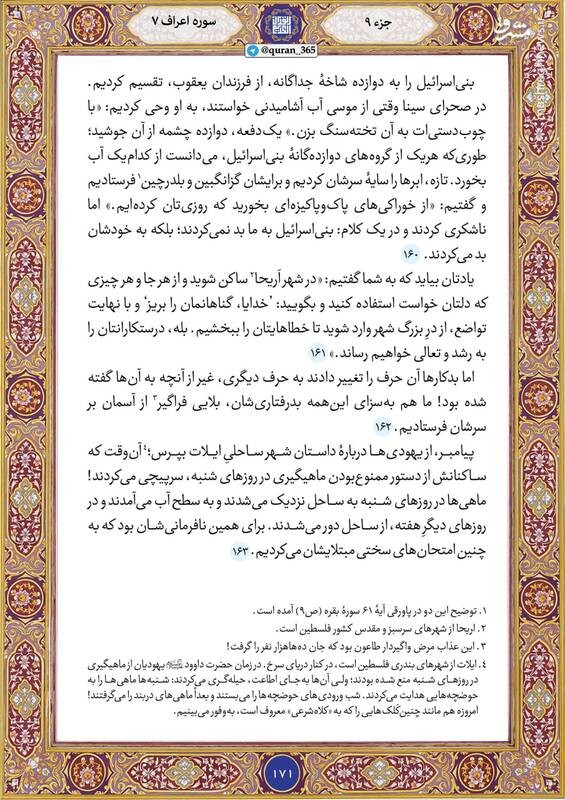 سوره اعراف ۷
جزء ۹
@quran_365
مشرق
بنی‌اسرائیل را به دوازده شاخهٔ جداگانه، از فرزندان یعقوب، تقسیم کردیم.
در صحرای سینا وقتی از موسی آب آشامیدنی خواستند، به او وحی کردیم: «با
چوب‌دستی‌ات به آن تخته‌سنگ بزن.» یک‌دفعه، دوازده چشمه از آن جوشید؛
طوری‌که هریک از گروه‌های دوازده‌گانهٔ بنی‌اسرائیل، می‌دانست از کدام‌یک آب
بخورد. تازه، ابرها را سایهٔ سرشان کردیم و برایشان گزانگبین و بلدرچین۱ فرستادیم
و گفتیم: «از خوراکی‌های پاک‌وپاکیزه‌ای بخورید که روزی‌تان کرده‌ایم.» اما
ناشکری کردند و در یک کلام: بنی‌اسرائیل به ما بد نمی‌کردند؛ بلکه به خودشان
بد می‌کردند. ۱۶۰
یادتان بیاید که به شما گفتیم: «در شهر اَریحا۲ ساکن شوید و از هر جا و هر چیزی
که دلتان خواست استفاده کنید و بگویید: ’خدایا، گناهانمان را بریز‘ و با نهایت
تواضع، از درِ بزرگ شهر وارد شوید تا خطاهایتان را ببخشیم. بله، درستکارانتان را
به رشد و تعالی خواهیم رساند.» ۱۶۱
اما بدکارها آن حرف را تغییر دادند به حرف دیگری، غیر از آنچه به آن‌ها گفته
شده بود! ما هم به‌سزای این‌همه بدرفتاری‌شان، بلایی فراگیر۳ از آسمان بر
سرشان فرستادیم. ۱۶۲
پیامبر، از یهودی‌ها دربارهٔ داستان شهر ساحلیِ ایلات بپرس؛۴ آن‌وقت که
ساکنانش از دستور ممنوع‌بودن ماهیگیری در روزهای شنبه، سرپیچی می‌کردند!
ماهی‌ها در روزهای شنبه به ساحل نزدیک می‌شدند و به سطح آب می‌آمدند و در
روزهای دیگرِ هفته، از ساحل دور می‌شدند. برای همین نافرمانی‌شان بود که به
چنین امتحان‌های سختی مبتلایشان می‌کردیم. ۱۶۳
۱. توضیح این دو در پاورقی آیهٔ ۶۱ سورهٔ بقره (ص۹) آمده است.
۲. اریحا از شهرهای سرسبز و مقدس کشور فلسطین است.
۳. این عذاب مرض واگیردار طاعون بود که جان ده‌هاهزار نفر را گرفت!
۴. ایلات از شهرهای بندری فلسطین است، در کنار دریای سرخ. در زمان حضرت داوود یهودیان از ماهیگیری
در روزهای شنبه منع شده بودند؛ ولی آن‌ها به‌جای اطاعت، حیله‌گری می‌کردند: شنبه‌ها ماهی‌ها را به
حوضچه‌هایی هدایت می‌کردند. شب ورودی‌های حوضچه‌ها را می‌بستند و بعداً ماهی‌های دربند را می‌گرفتند!
امروزه هم مانند چنین کَلک‌هایی را که به «کلاه‌شرعی» معروف است، به‌وفور می‌بینیم.
۱۷۱